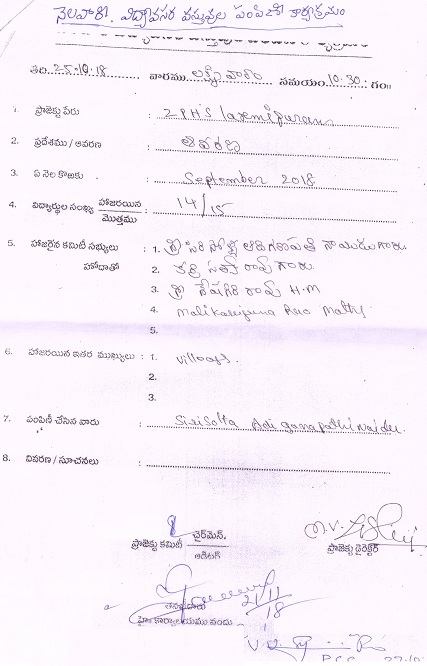 నెలవారీ విద్యావసర వస్తువుల పంపిణీ కార్యక్రమం
తేది 25.10.18 వారము లక్ష్మి వారం సమయం 10:30 గం॥
1. ప్రాజెక్టు పేరు : ZPHS laxmipuram
2. ప్రదేశము / ఆవరణ : ఆవరణ
3. ఏ నెల కొఱకు : September 2018
4. విద్యార్థుల సంఖ్య హాజరయిన / మొత్తము : 14/15
5. హాజరైన కమిటీ సభ్యులు : 1. శ్రీ సిరిసోళ్ళ ఆదిగణపతి నాయుడు గారు
హోదాతో 2. సత్య రావు గారు
3. శ్రీ శేషగిరి రావు H.M
4. Malikarjuna Rao Matty
5.
6. హాజరయిన ఇతర ముఖ్యులు : 1.
2.
3.
7. పంపిణీ చేసిన వారు : Sirisolla Adi ganapathi Naidu
8. వివరణ / సూచనలు :
ప్రాజెక్టు కమిటీ చైర్మెన్. / ఆడిటర్
ప్రాజెక్టు డైరెక్టర్
21/11
18
హై కార్యాలయము నందు